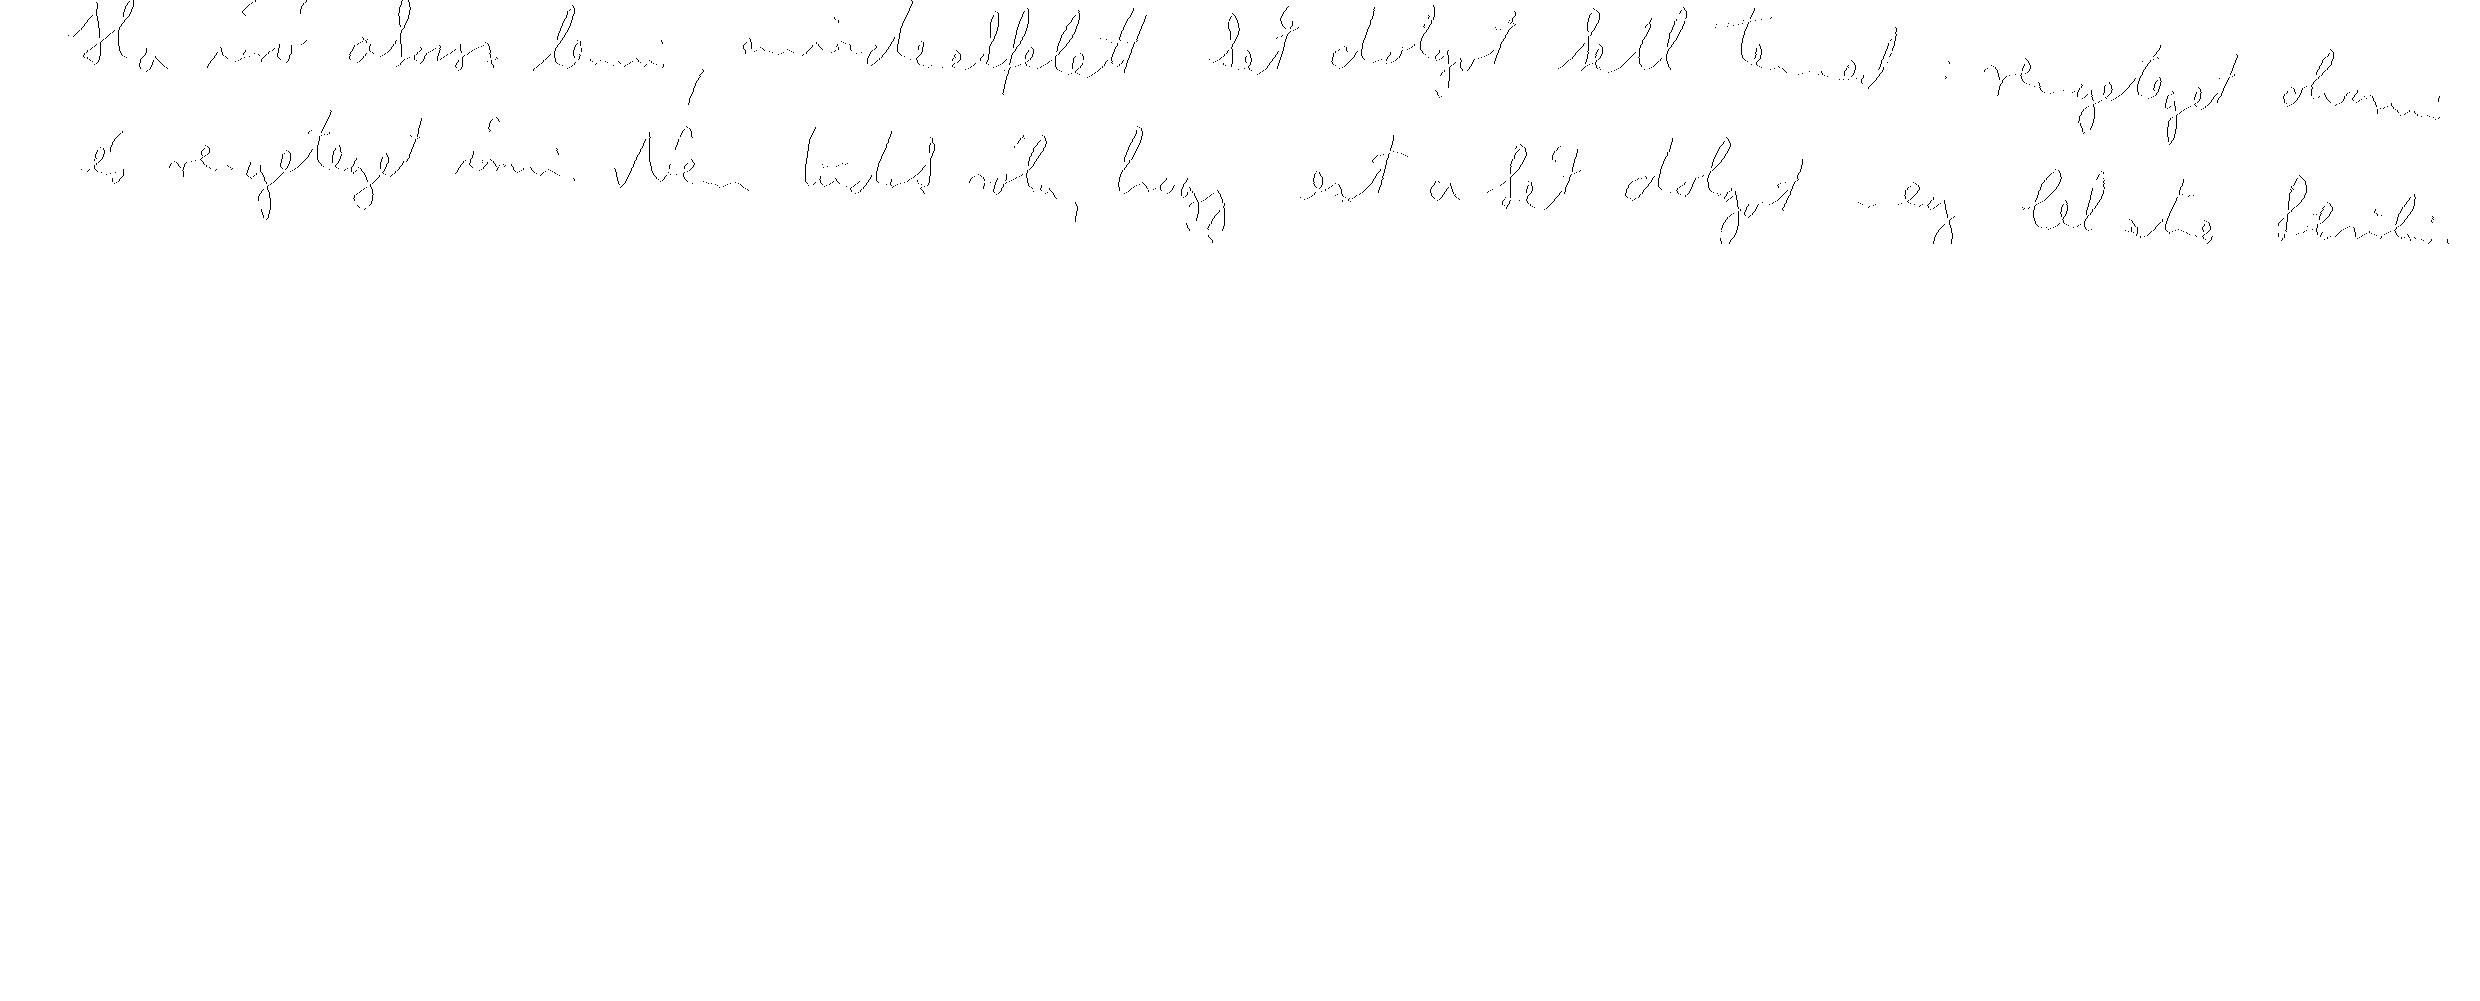 Ha író akarsz lenni, mindenekfelett két dolgot kell tenned : rengeteget olvasni
és rengeteget írni. Nem tudok róla, hogy ezt a két dolgot meg lehetne kerülni.